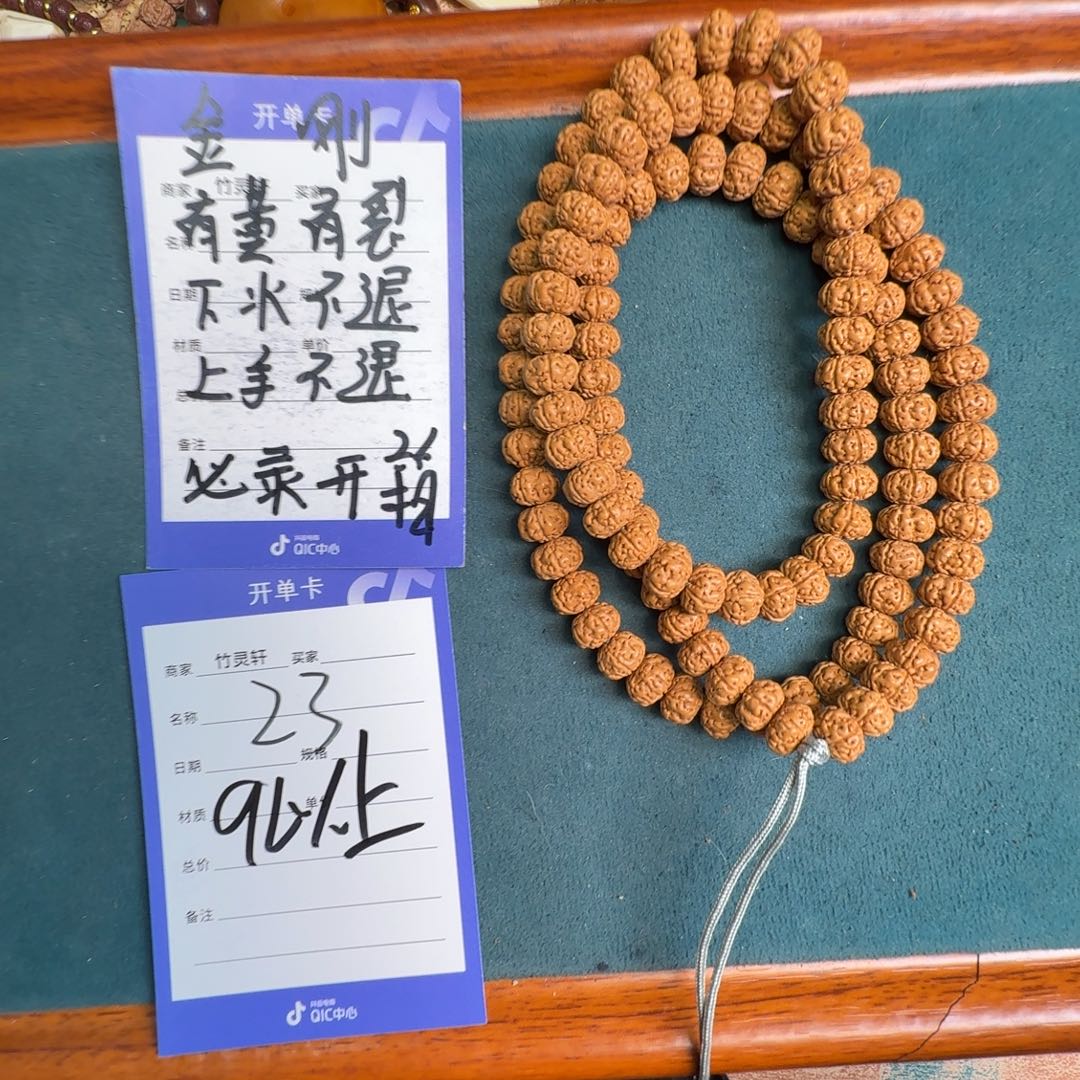 开单卡
金刚
商家 竹灵轩 买家
有薰有裂
名
日期
下水不退
材质 单价
上手不退
备注
必录开箱
抖音电商
QIC中心
开单卡
商家 竹灵轩 买家
23
名称
日期 规格
材质 单
96%上
总价
备注
抖音电商
QIC中心